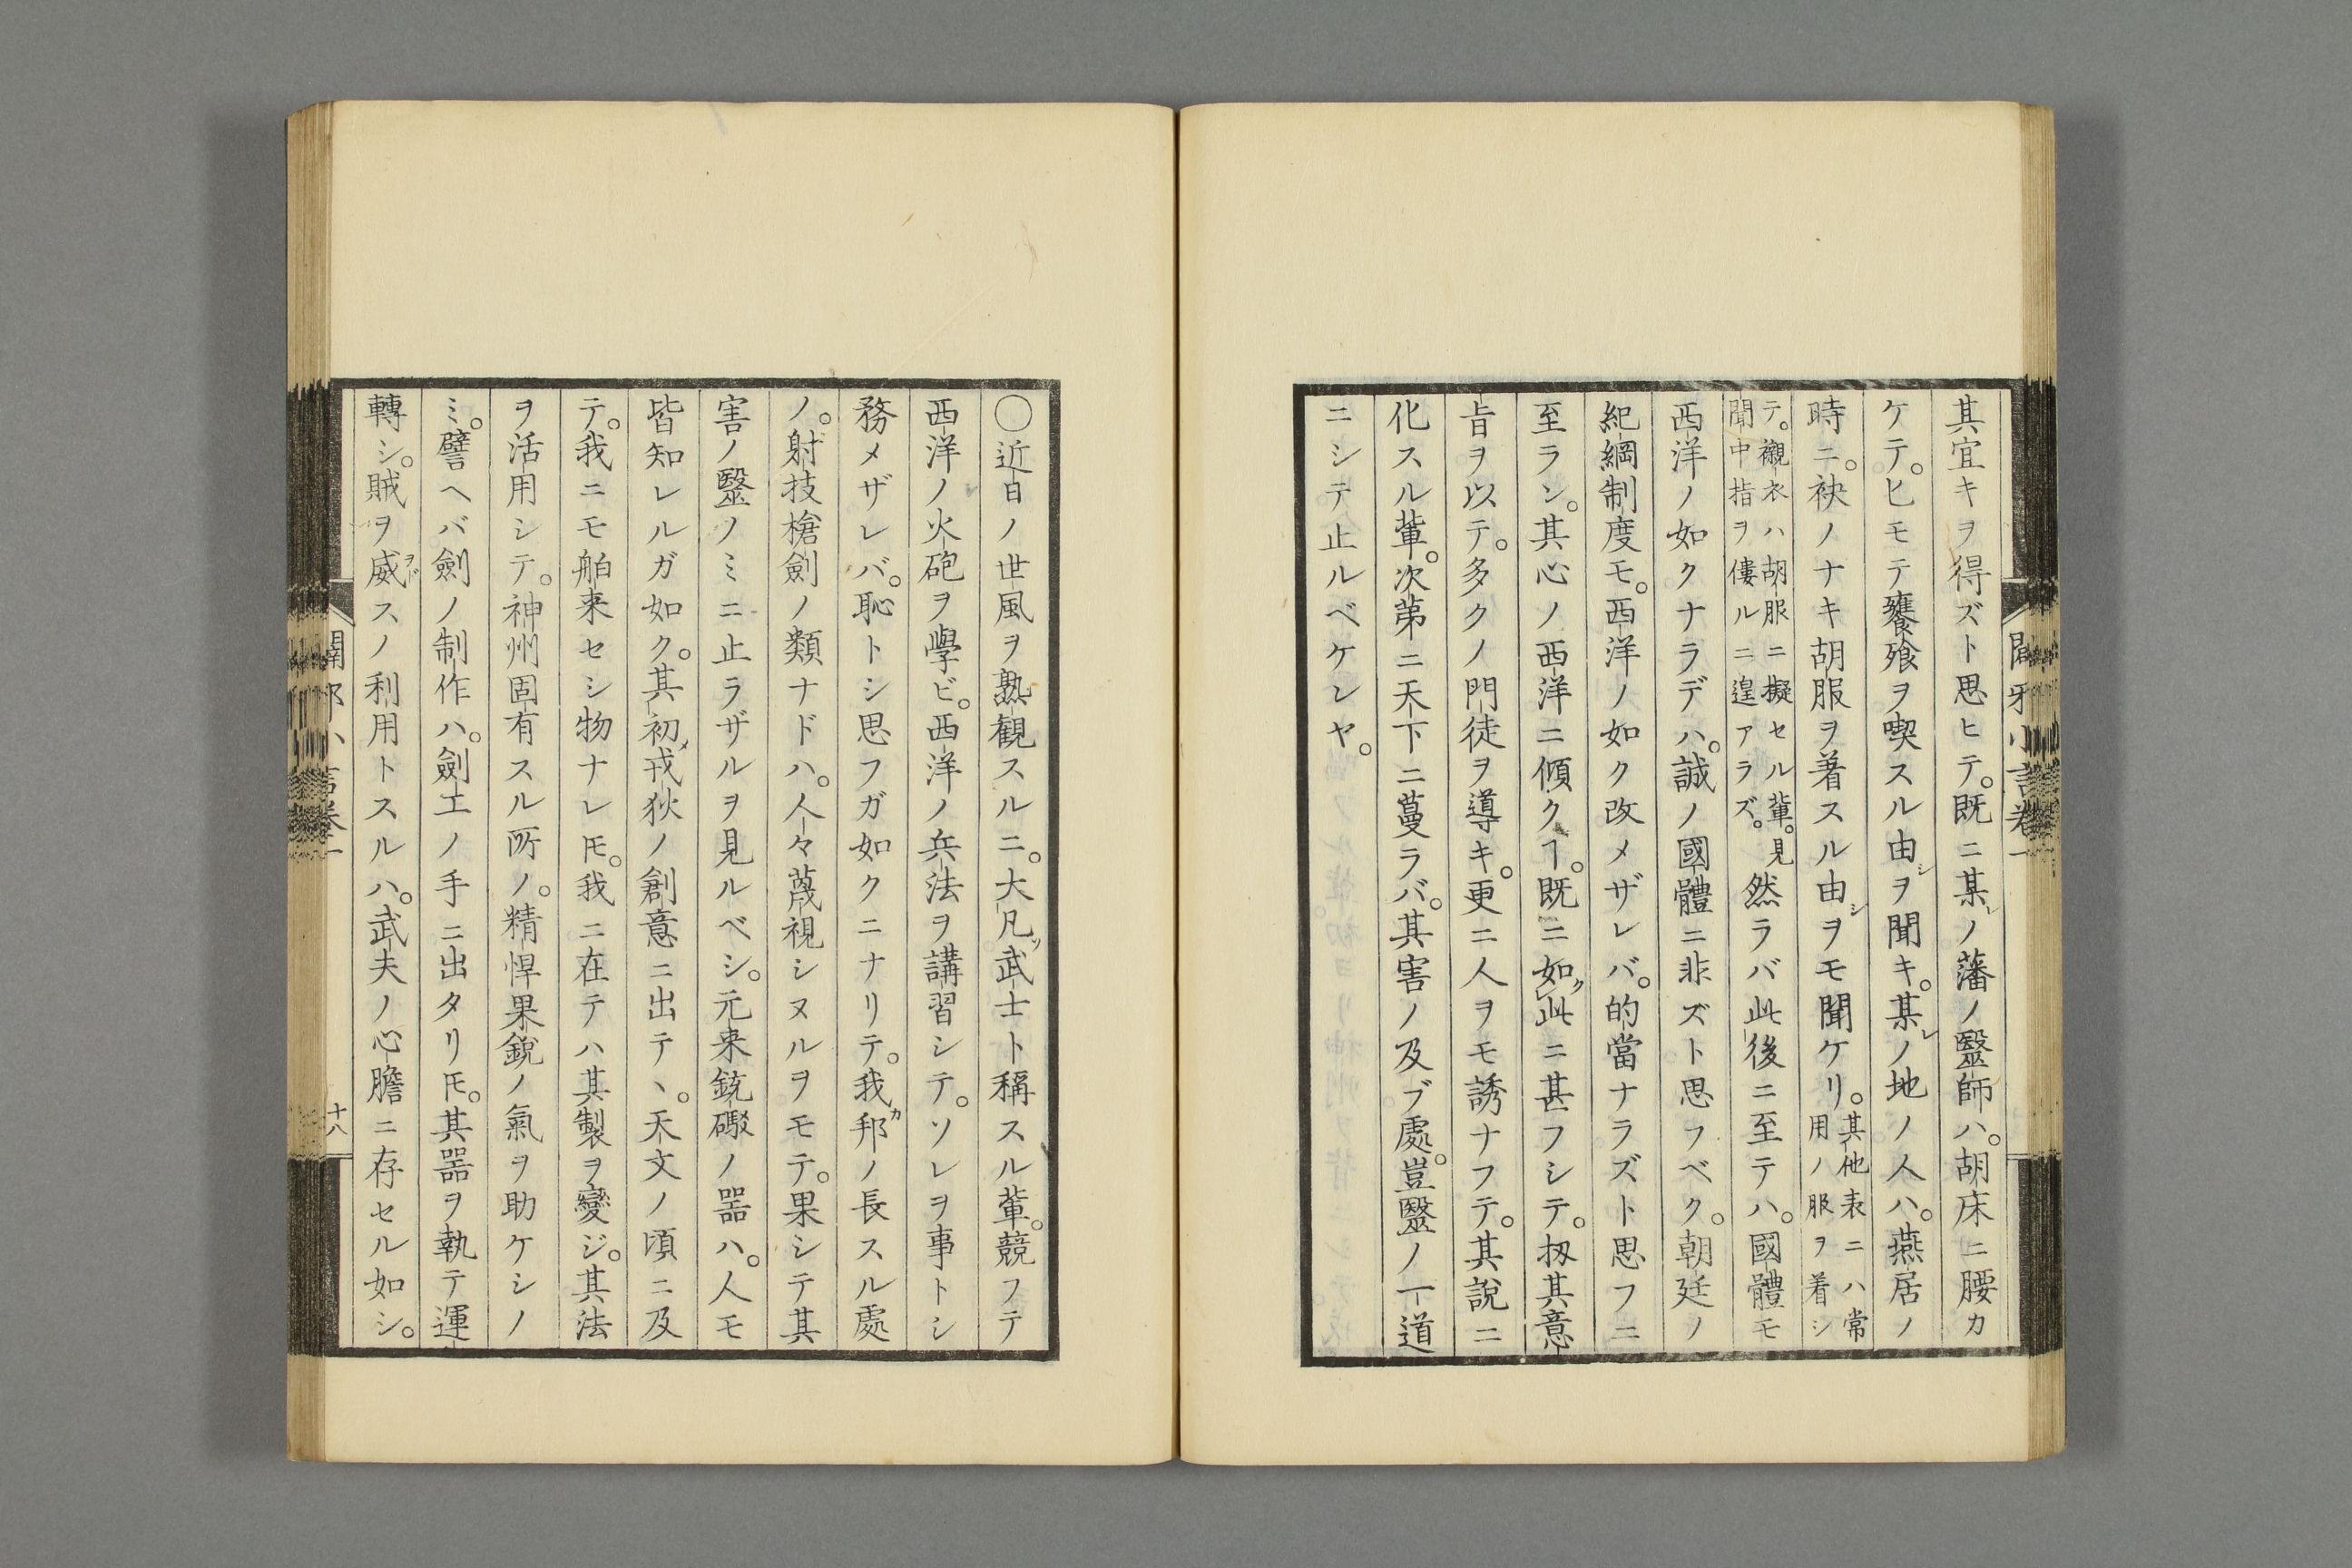 其宜キヲ得ズト思ヒテ。既ニ某ノ藩ノ醫師ハ。胡床ニ腰カ
ケテ。匕モテ饔飧ヲ喫スル由ヲ聞キ。某ノ地ノ人ハ。燕居ノ
時ニ。袂ノナキ胡服ヲ著スル由ヲモ聞ケリ。其他表ニハ常
用ノ服ヲ着シ
テ。襯衣ハ胡服ニ擬セル輩。見
聞中指ヲ僂ルニ遑アラズ。
然ラバ此後ニ至テハ。國體モ
西洋ノ如クナラデハ。誠ノ國體ニ非ズト思フベク。朝廷ノ
紀綱制度モ。西洋ノ如ク改メザレバ。的當ナラズト思フニ
至ラン。其心ノ西洋ニ傾クヿ。既ニ如此ニ甚フシテ。扨其意
旨ヲ以テ。多クノ門徒ヲ導キ。更ニ人ヲモ誘ナフテ。其說ニ
化スル輩。次第ニ天下ニ蔓ラバ。其害ノ及ブ處。豈醫ノ一道
ニシテ止ルベケレヤ。
〇近日ノ世風ヲ熟観スルニ。大凡武士ト稱スル輩。競フテ
西洋ノ火砲ヲ學ビ。西洋ノ兵法ヲ講習シテ。ソレヲ事トシ
務メザレバ。恥トシ思フガ如クニナリテ。我邦ノ長スル處
ノ。射技槍劍ノ類ナドハ。人々蔑視シヌルヲモテ。果シテ其
害ノ醫ノミニ止ラザルヲ見ルベシ。元来銃礟ノ器ハ。人モ
皆知レルガ如ク。其初メ戎狄ノ創意ニ出テヽ。天文ノ頃ニ及
テ。我ニモ舶来セシ物ナレ𪜈。我ニ在テハ其製ヲ變ジ。其法
ヲ活用シテ。神州固有スル所ノ。精悍果銳ノ氣ヲ助ケシノ
ミ。譬ヘバ劍ノ制作ハ。劍工ノ手ニ出タリ𪜈。其器ヲ執テ運
轉シ。賊ヲ威スノ利用トスルハ。武夫ノ心膽ニ存セル如シ。
十八